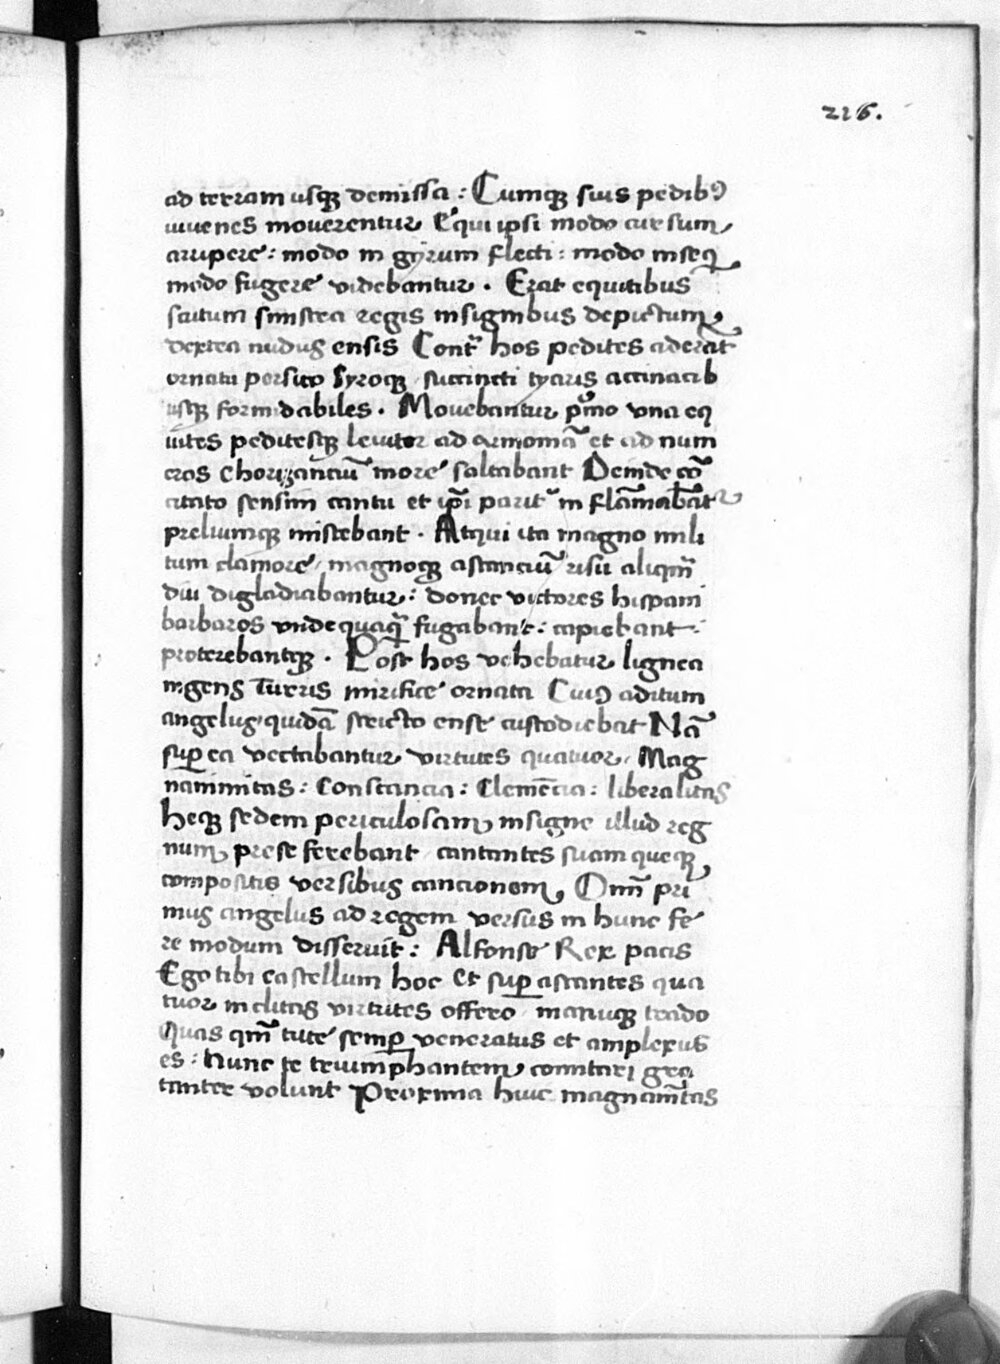 226.
ad terram usqꝫ demissa : Cumqꝫ suis pedibꝯ
iuuenes mouerentur Equi ipsi modo cursum
arripere : modo in gyrum flecti : modo inseq̨
modo fugere videbantur . Erat equitibus
scutum sinistra regis insignibus depictum
dextra nudus ensis Cont̃ hos pedites aderāt
ornatu persico Syroqꝫ succincti tyaris accinacib
usqꝫ formidabiles . Mouebantur p̊mo vna eq
uites peditesqꝫ leuiter ad armoniā et ad num
eros chorizanciū more saltabant Deinde cō
citato sensim cantu et ip̄i parit̃ in flāmabāt̃
preliumqꝫ miscebant . Atqui ita magno mili
tum clamore magnoqꝫ astanciū risu aliqm̄
diu digladiabantur : donec victores hispani
barbaros vndequaq̃ fugabant : capiebant :
proterebantqꝫ . Post hos vehebatur lignea
ingens Turris mirifice ornata Cuiꝯ aditum
angelus quidā stricto ense custodiebat Nā
suꝑ ea vectabantur virtutes quatuor Mag
nanimitas : Constancia : Clemēcia : liberalitas
heqꝫ sedem periculosam insigne illud reg
num prese ferebant cantantes suam queqꝫ
compositis versibus cancionem Om̄ pri
mus angelus ad regem versus in hunc fe
re modum disseruit : Alfonse Rex pacis
Ego tibi castellum hoc et suꝑ astantes qua
tuor inclitas virtutes offero manuqꝫ trado
Quas qm̄ tute semꝑ veneratus et amplexus
es : Nunc te triumphantem comitari gra
tanter volunt Proxima huic magnam̄tas